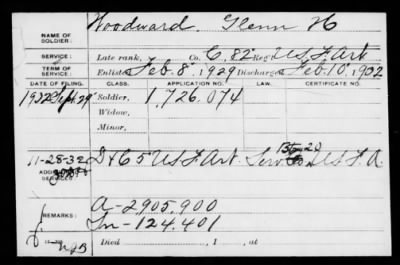 NAME OF SOLDIER: Woodward. Glenn H
SERVICE: Late rank, Co. C, 82" Reg't U S F Art
TERM OF SERVICE: Enlisted Feb. 8, 1929 Discharged Feb. 10, 1932
DATE OF FILING. CLASS. APPLICATION NO. LAW. CERTIFICATE NO.
1932 Sept 29 Soldier, 1,726,074
Widow,
Minor,
11-28-32
ADDITIONAL SERVICES: D + C 5 U S F Art. Serv Co U S F A.
REMARKS: A-2905,900
In-124,401
Died , 1 , at